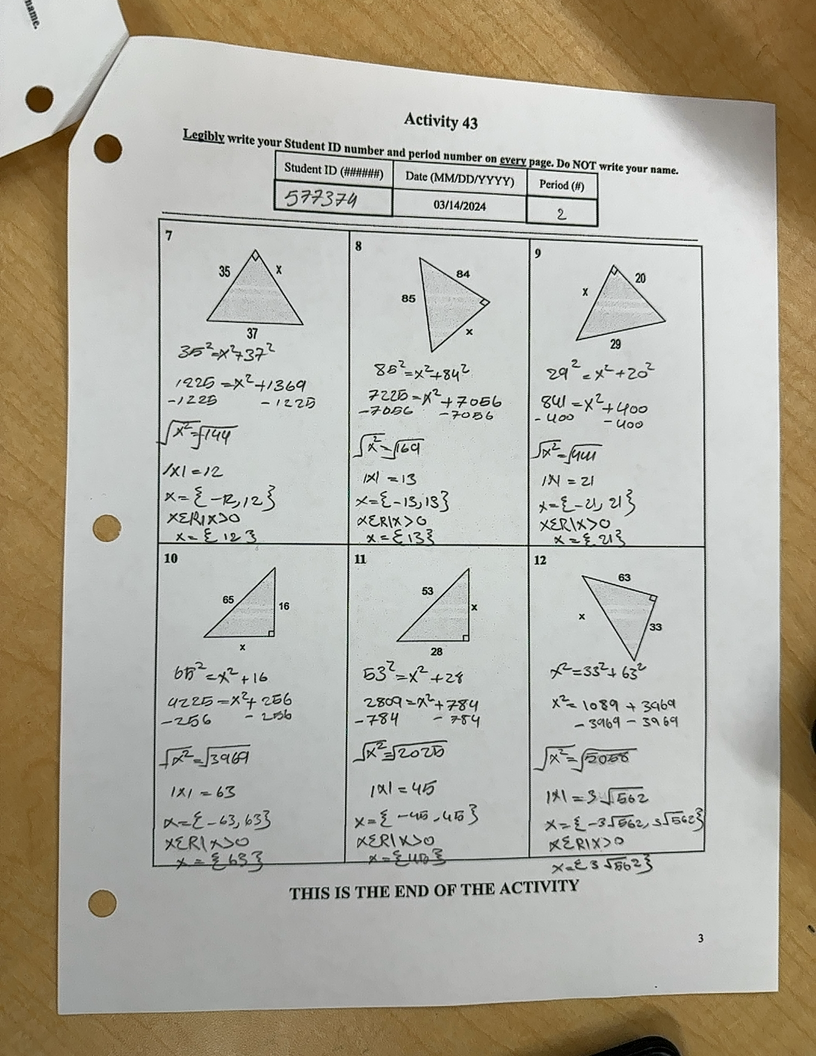 name.
Activity 43
Legibly write your Student ID number and period number on every page. Do NOT write your name.
Student ID (######) Date (MM/DD/YYYY) Period (#)
577374 03/14/2024 2
7
35 x
37
35²=x²+37²
1225=x²+1369
-1225 -1225
√x²=√144
|x|=12
x={-12,12}
xεR|x>0
x={12}
8
84
85
x
85²=x²+84²
7225=x²+7056
-7056 -7056
√x²=√169
|x|=13
x={-13,13}
xεR|x>0
x={13}
9
20
x
29
29²=x²+20²
841=x²+400
-400 -400
√x²=√441
|x|=21
x={-21,21}
xεR|x>0
x={21}
10
65 16
x
65²=x²+16
4225=x²+256
-256 -256
√x²=√3969
|x|=63
x={-63,63}
xεR|x>0
x={63}
11
53
x
28
53²=x²+28
2809=x²+784
-784 -784
√x²=√2025
|x|=45
x={-45,45}
xεR|x>0
x={45}
12
63
x
33
x²=33²+63²
x²=1089+3969
-3969-3969
√x²=√5058
|x|=3√562
x={-3√562,3√562}
xεR|x>0
x={3√562}
THIS IS THE END OF THE ACTIVITY
3